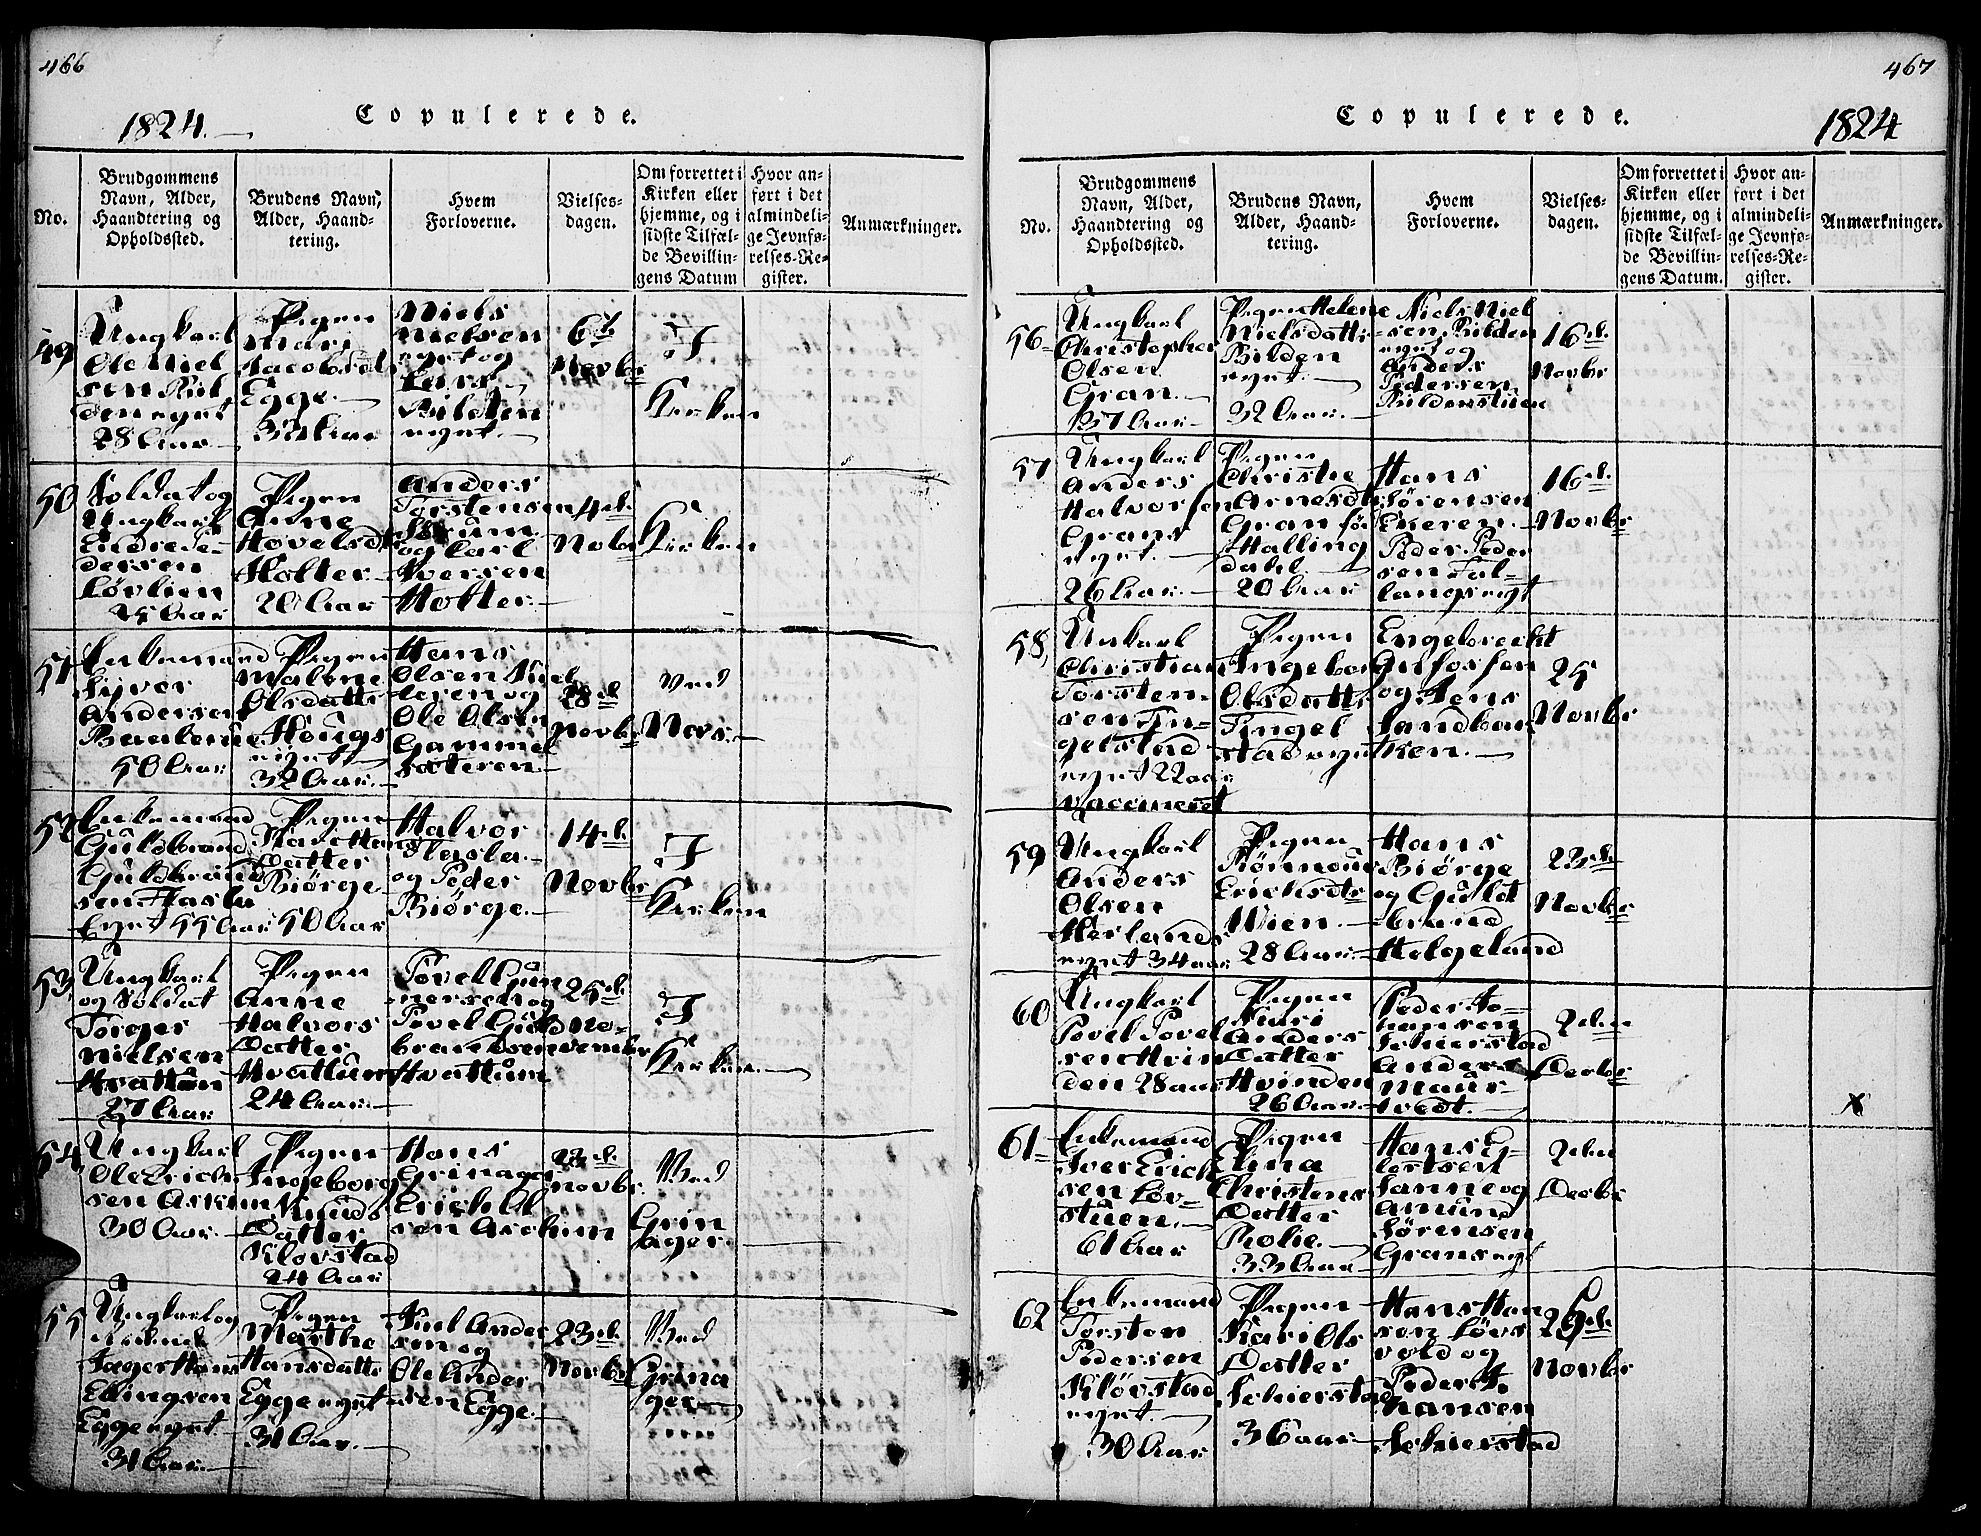 466
1824.
Copulerede.
No.
Brudgommens
Navn, Alder,
Haandtering og
Opholdssted.
Brudens Navn,
Alder, Haand-
tering.
Hvem
Forloverne.
Vielses-
dagen.
Om forrettet i
Kirken eller
hjemme, og i
sidste Tilfæl-
de Bevillin-
gens Datum
Hvor an-
ført i det
almindeli-
ge Jevnfø-
relses-Re-
gister.
Anmærkninger.
49
Ungkarl
Ole Niel
sen Bil
den eynt
28 Aar
Pigen
Mari
Jacobsdt
Egge
Niels
Nielsen
eynt og
Lars
Bilden
eynt.
6te
Novbr
I
Kirken
50
Soldat og
Ungkarl
Endre
dersen
Løvlien
25 Aar
Pigen
Anne
Hovelsdtr
Holter
20 Aar
Anders
Torstensen
og Carl
Iversen
Holter
4de
Nobr
Kirken
51
Enkemand
Siver
Andersen
50 Aar
Pigen
Malene
Olsdatter
Hougs
eynt
32 Aar
Hans
Olsen
og
Ole Olsen
Gamme
sæteren
28de
Novbr
ved
Nors.
52
Enkemand
Guldbrand
Guldbrand
sen Hasle
Eynt 55 Aar
Pigen
Datter
Biørge
50 Aar
Halvor
Hasle
og Peder
Biørge
14de
Novbr
I
Kirken
53
Ungkarl
og Soldat
Torger
Nielsen
Hvattum
27 Aar
Pigen
Anne
Halvors
Datter
Hvattum
24 Aar
Povel Gun
nersen og
Povel Guld
brandsen
Hvattum
25de
No-
vember
I
Kirken
54
Ungkarl
Ole Erich
sen Askum
30 Aar
Pigen
Ingeborg
Knuds
Datter
Klovstad
24 Aar
Hans
Grinager
Erich Ol
sen Aschim
23de
Novbr
Ved
Grin
ager
55
Ungkarl og
Jæger Hans
Ellingsen
Egge eynt
31 Aar
Pigen
Marthe
Hansdatter
Egge eynt
31 Aar
Niel Ander
sen og
Ole Ander
sen Egge
23de
Novbr
Ved
Grina
ger
467
Copulerede.
1824
No.
Brudgommens
Navn, Alder,
Haandtering og
Opholdssted.
Brudens Navn,
Alder, Haand-
tering.
Hvem
Forloverne.
Vielses-
dagen.
Om forrettet i
Kirken eller
hjemme, og i
sidste Tilfæl-
de Bevillin-
gens Datum.
Hvor an-
ført i det
almindeli-
ge Jevnfø-
relses-Re-
gister.
Anmærkninger.
56
Ungkarl
Christopher
Olsen
Gran
37 Aar
Pigen Helene
Nielsdatter
Bilden
eynt.
32 Aar
Niels Niel
sen Bilden
eynt og
Anders
Pedersen
Bildenstuen
16de
Novbr
57
Ungkarl
Anders
Halvorsen
Grans
eynt.
26 Aar
Pigen
Christie
Arnesdtr
Gran fød
i Halling
dahl
20 Aar
Hans
Sørensen
Ekeren
Peder Peder
sen Fal-
langs eygt
16de
Novbr
58
Unkarl
Christian
Torsten
sen Tin-
gelstad
eynt 22 aar
Vaccineret
Pigen
Ingeborg
Olsdatter
Tingel
stad eynt
Engebrecht
og Jens
Sandbak
ken.
25
Novbr
59
Ungkarl
Anders
Olsen
Herlands
eynt 34 aar
Pigen
Rønnaug
Erichsdtr
Wien
28 Aar
Hans
Biørge
og Guld
brand
Helgeland
23de
Novbr
60
Ungkarl
Povel Povel
sen Hvin
den 28 aar
Pigen
Kari
Anders
Datter
Hvinden
26 Aar
Peder Jo-
hansen
Schierstad
Anders
Maur-
tvedt.
2den
Decbr
61
Enkemand
Iver Erich
sen Løv-
stuen
61 Aar
Pigen
Elina
Christens
Datter
33 Aar
Hans Ey-
lertsen
Sanne og
Amund
Sørensen
Grans eygt
2den
Decbr
62
Enkemand
Torsten
Pedersen
Kløvstad
eynt.
30 Aar
Pigen
Kari Ols
Datter
Schierstad
36 aar
Hans Han
sen Løvs
vold og
Peder Jo
hansen
Schierstad
26de
Novbr